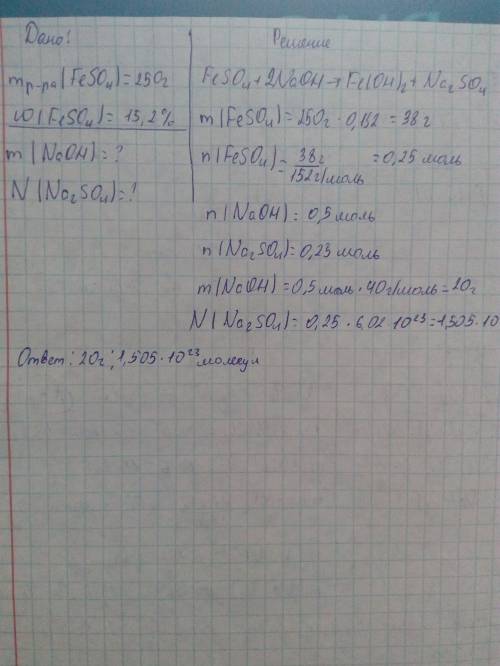 Дано:
mр-ра(FeSO₄)=250г
ω(FeSO₄)= 15,2%
m(NaOH)=?
N(Na₂SO₄)=?
Решение
FeSO₄+2NaOH→Fe(OH)₂+Na₂SO₄
m(FeSO₄)=250г·0,152=38г
n(FeSO₄)=38г/152г/моль=0,25 моль
n(NaOH)=0,5моль
n(Na₂SO₄)=0,25 моль
m(NaOH)=0,5моль·40г/моль=20г
N(Na₂SO₄)=0,25·6,02·10²³=1,505·10
Ответ: 20г; 1,505·10²³молекул